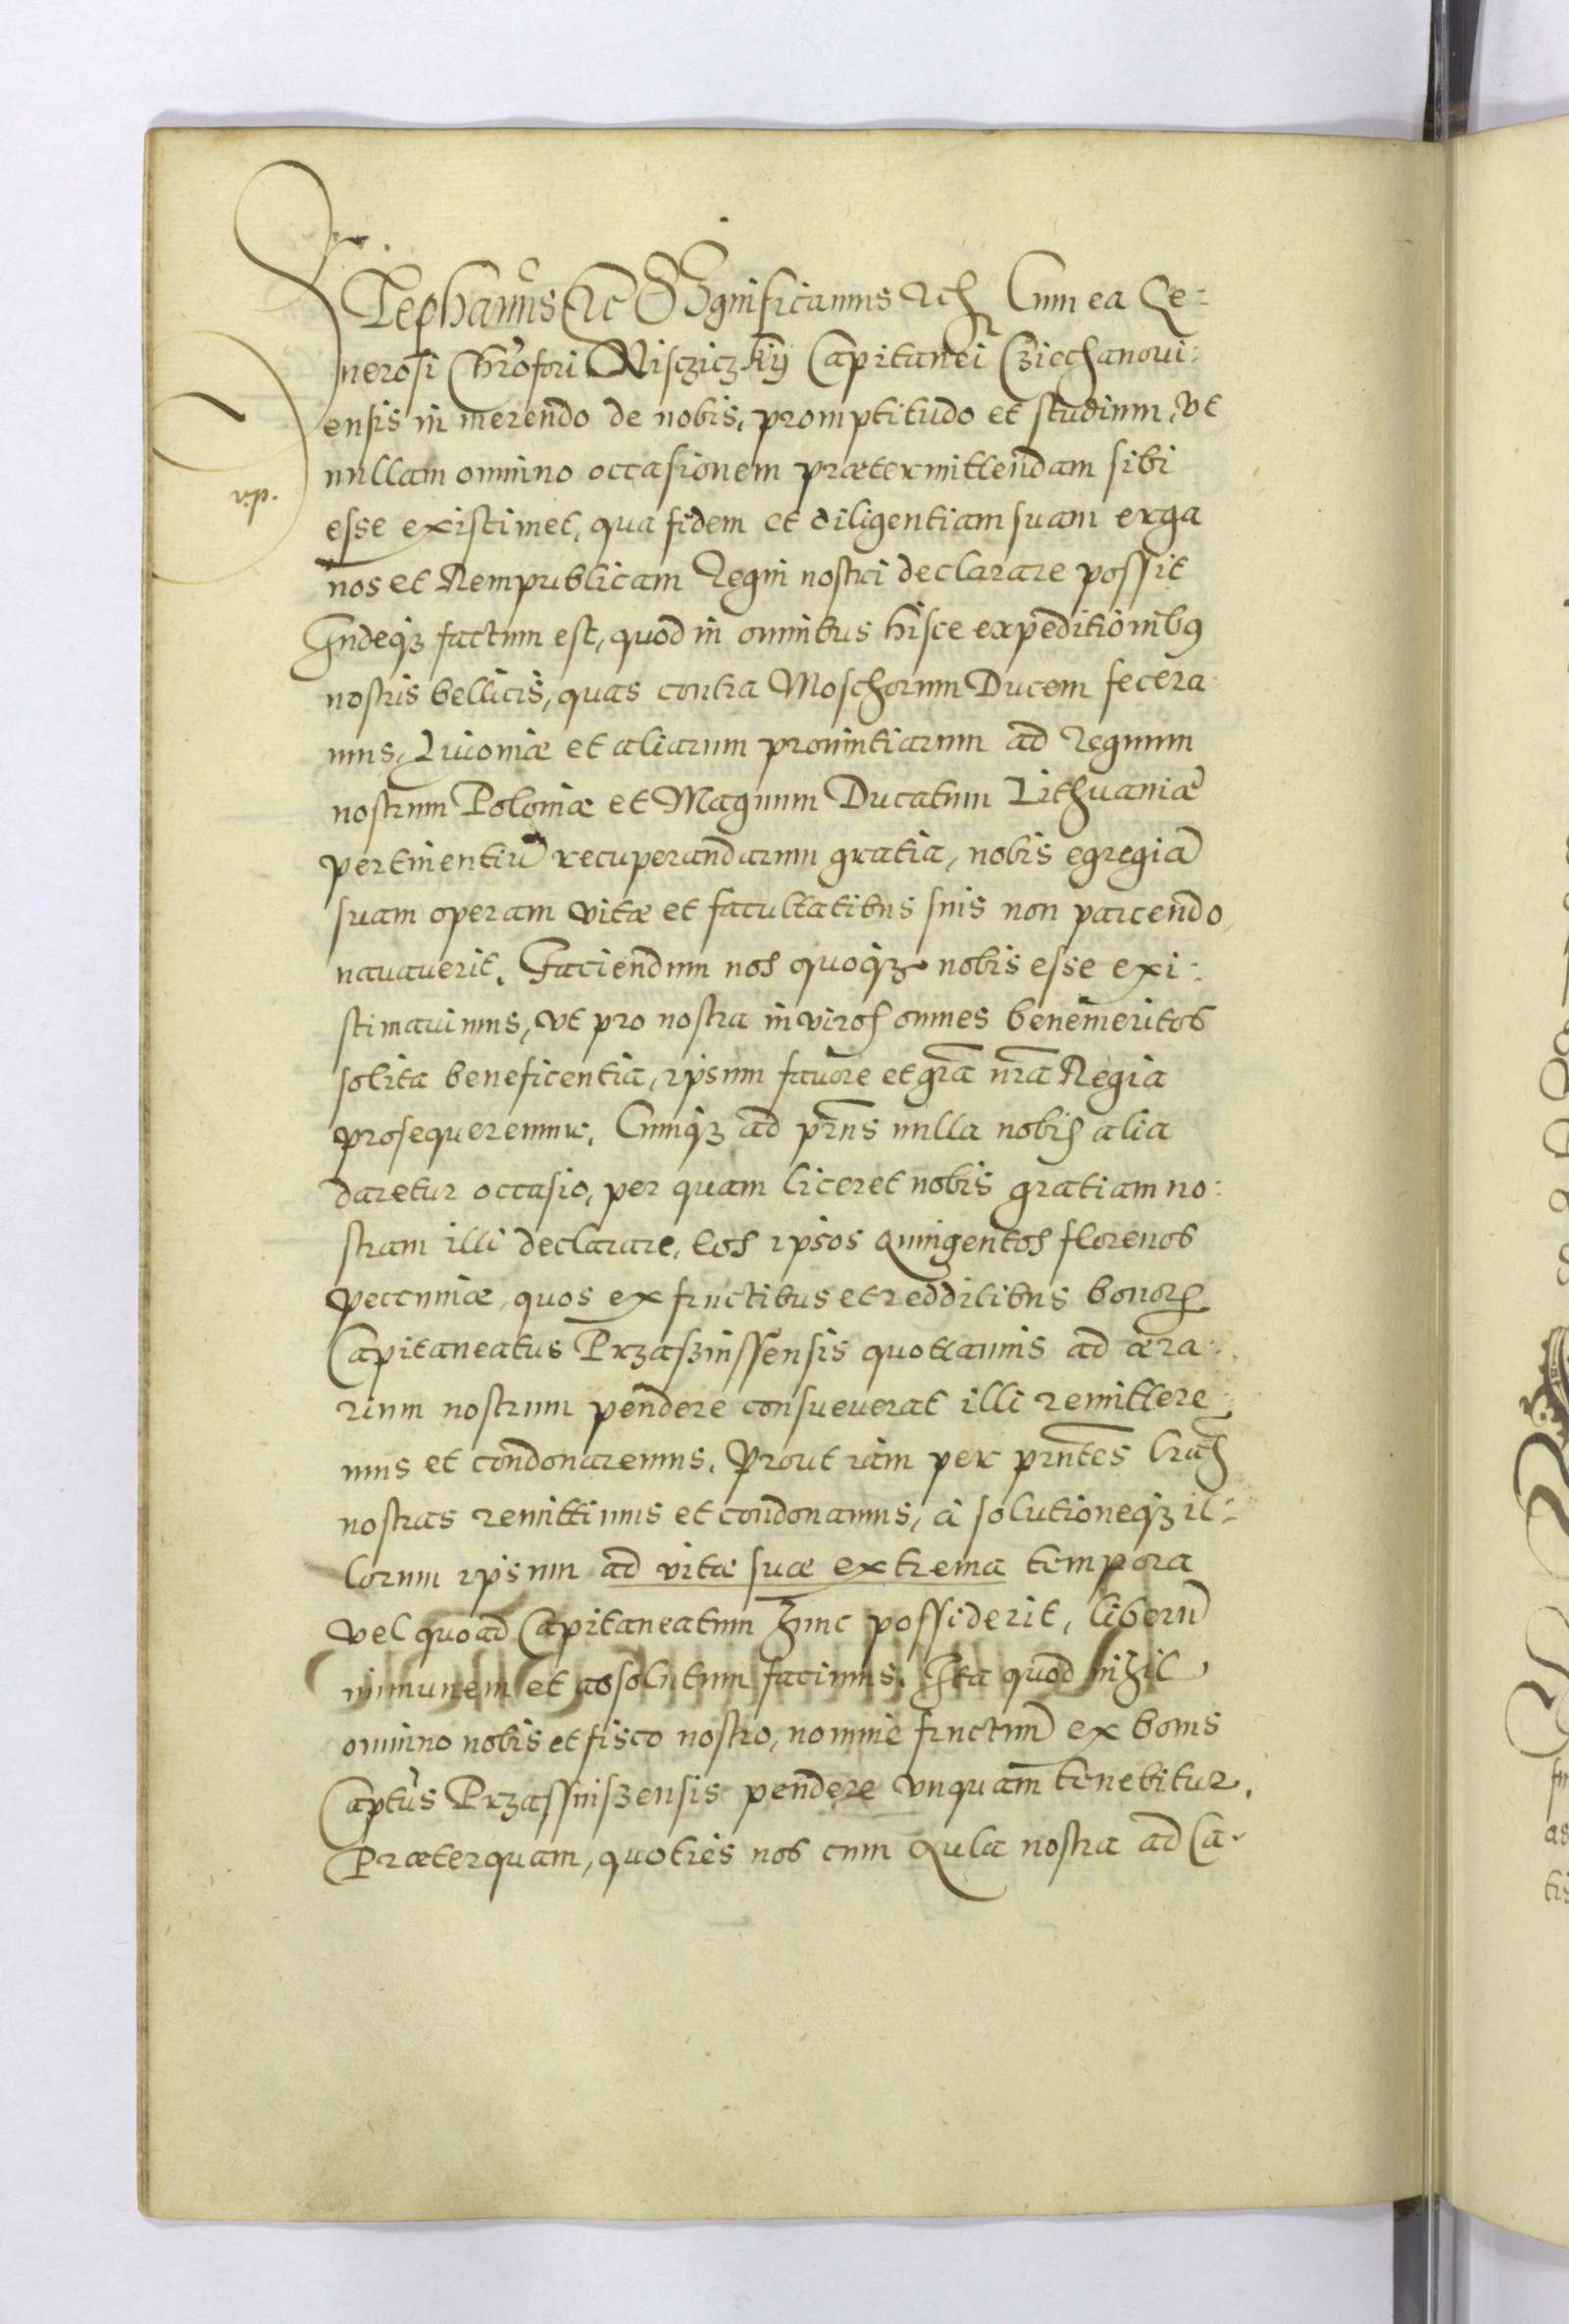 Stephanus etc Significamus etc̃ Cum ea Ge:
nerosi Chrõfori Nisczickÿ Capitanei Cziechanoui:
ensis in merendo de nobis, promptitudo et studium, vt
nullam omnino occasionem prætermittendam sibi
v.p.
esse existimet, qua fidem et diligentiam suam erga
nos et Rempublicam Regni nostri declarare possit
Indeqꝫ factum est, quod in omnibus hisce expeditionibꝰ
nostris bellicis, quas contra Moschorum Ducem fecera
mus, Liuoniæ et aliarum prouintiarum ad Regnum
nostrum Poloniæ et Magnum Ducatum Lithuaniæ
pertinentiũ recuperandarum gratia, nobis egregiã
suam operam vitæ et facultatibus suis non parcendo,
nauauerit. Faciendum nos quoqꝫ nobis esse exi:
stimauimus, vt pro nostra in viros omnes benemeritos
solita beneficentia, ipsum fauore et grã nrã Regia
prosequeremur. Cumqꝫ ad prñs nulla nobis alia
daretur occasio, per quam liceret nobis gratiam no:
stram illi declarare, eos ipsos quingentos florenos
pecuniæ, quos ex fructibus et redditibus bonorꝝ
Capitaneatus Przasznissensis quottannis ad æra:
rium nostrum pendere consueuerat illi remittere
mus et condonaremus. Prout iam per prñtes lrãs
nostras remittimus et condonamus, à solutioneqꝫ il:
lorum ipsum ad vitæ suæ extrema tempora
vel quoad Capitaneatum hunc possiderit, liberũ
immunem et absolutum facimus. Ita quod nihil
omnino nobis et fisco nostro, nomine fructuũ ex bonis
Captũs Przassniszensis pendere vnquam tenebitur.
Præterquam, quoties nos cum Aula nostra ad Ca-